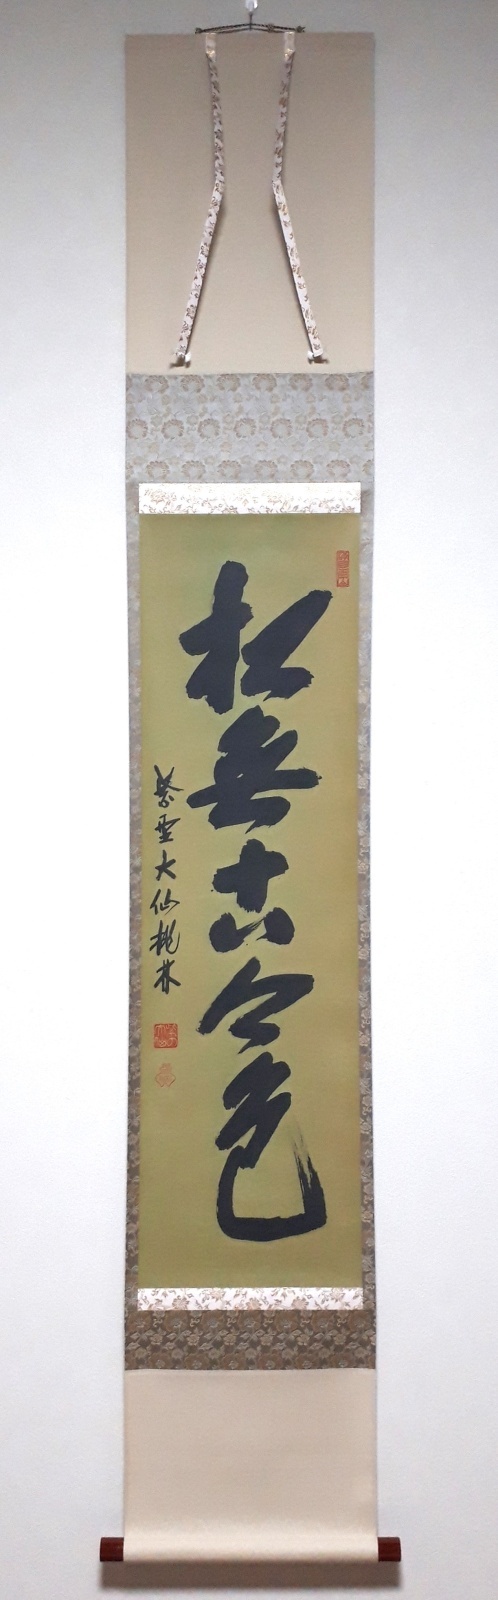 松無古今色
紫雲大仙桃林